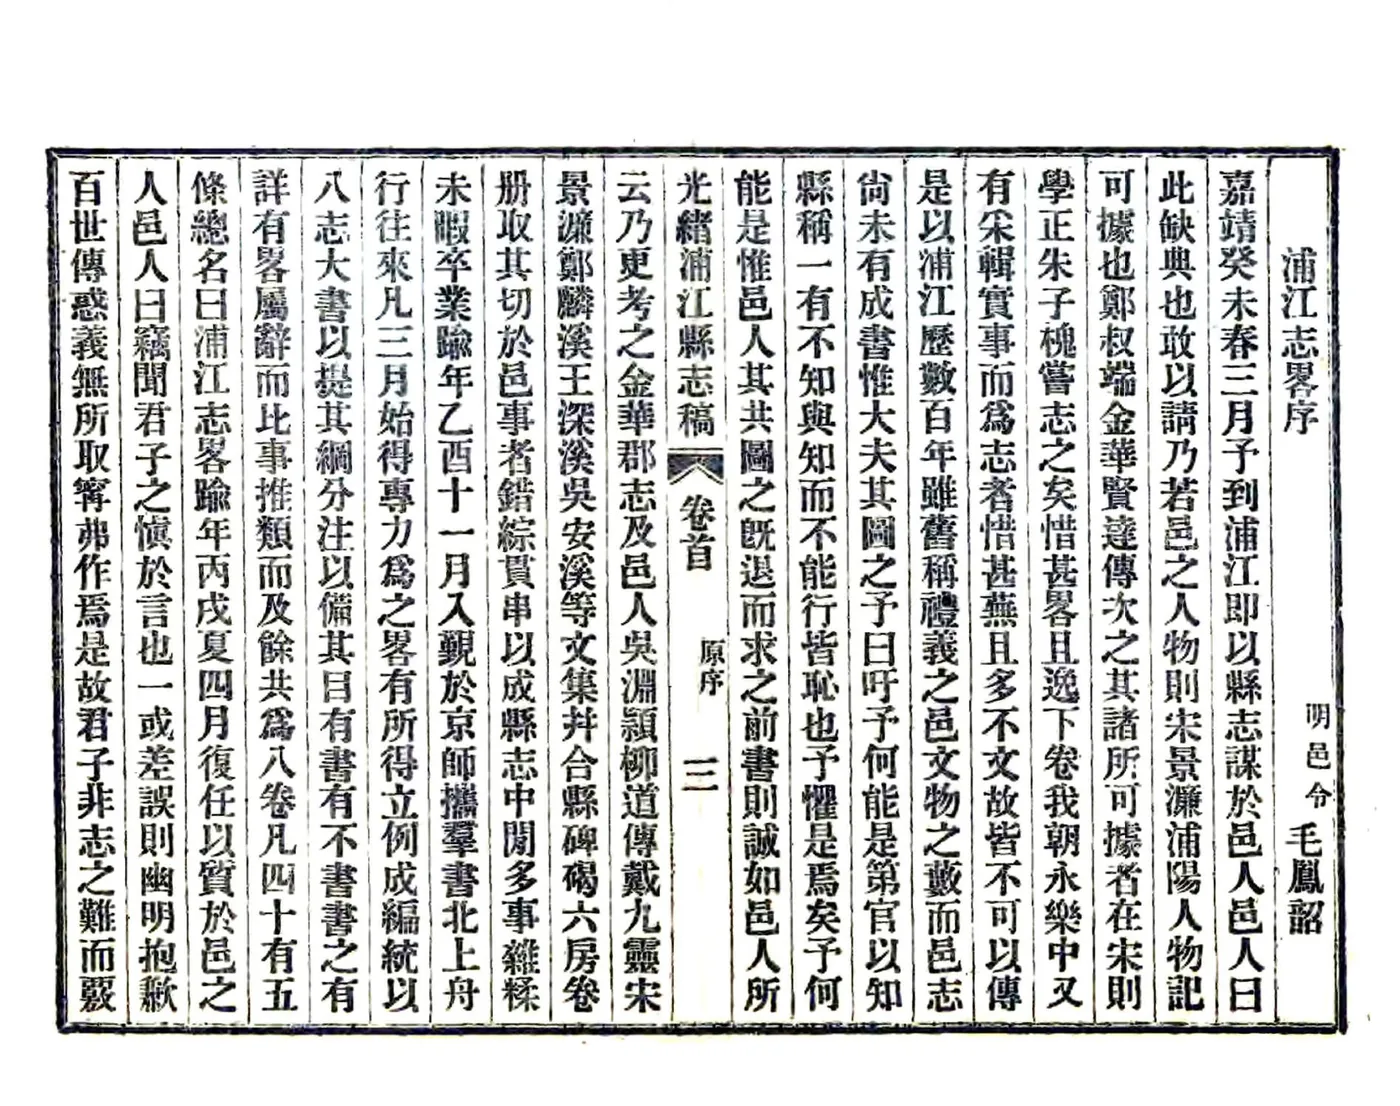 浦江志畧序
明邑令毛鳳韶
嘉靖癸未春三月予到浦江即以縣志謀於邑人邑人曰
此缺典也敢以請乃若邑之人物則宋景濂浦陽人物記
可據也鄭叔端金華賢達傳次之其諸所可據者在宋則
學正朱子槐嘗志之矣惜甚畧且逸下卷我朝永樂中又
有采輯實事而爲志者惜甚蕪且多不文故皆不可以傳
是以浦江歷數百年雖舊稱禮義之邑文物之藪而邑志
尙未有成書惟大夫其圖之予曰吁予何能是第官以知
縣稱一有不知與知而不能行皆恥也予懼是焉矣予何
能是惟邑人其共圖之旣退而求之前書則誠如邑人所
光緒浦江縣志稿 卷首 原序 三
云乃更考之金華郡志及邑人吳淵穎柳道傳戴九靈宋
景濂鄭麟溪王深溪吳安溪等文集幷合縣碑碣六房卷
册取其切於邑事者錯綜貫串以成縣志中閒多事雜糅
未暇卒業踰年乙酉十一月入覲於京師攜羣書北上舟
行往來凡三月始得專力爲之畧有所得立例成編統以
八志大書以提其綱分注以備其目有書有不書書之有
詳有畧屬辭而比事推類而及餘共爲八卷凡四十有五
條總名曰浦江志畧踰年丙戌夏四月復任以質於邑之
人邑人曰竊聞君子之愼於言也一或差誤則幽明抱歉
百世傳惑義無所取寗弗作焉是故君子非志之難而覈